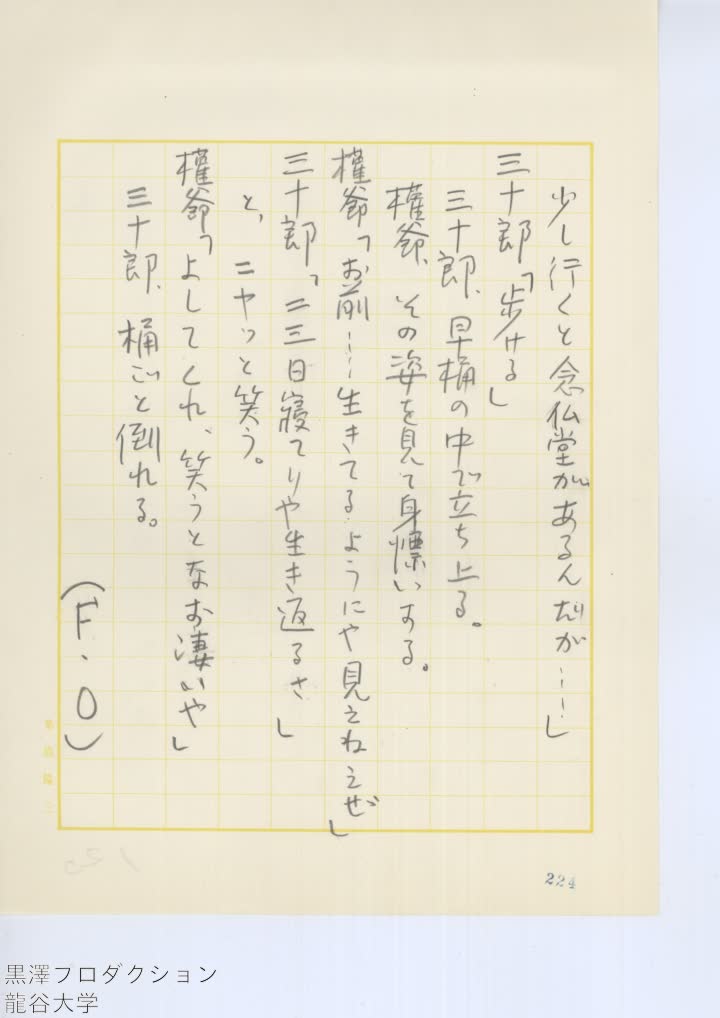 少し行くと念仏堂があるんだが……」
三十郎「歩ける」
三十郎、早桶の中で立ち上る。
権爺、その姿を見て身慄いする。
権爺「お前……生きてるようにや見えねえぜ」
三十郎「二三日寝てりや生き返るさ」
と、ニヤッと笑う。
権爺「よしてくれ、笑うとなお凄いや」
三十郎、桶ごと倒れる。
(F・O)
224
黒澤プロダクション
龍谷大学